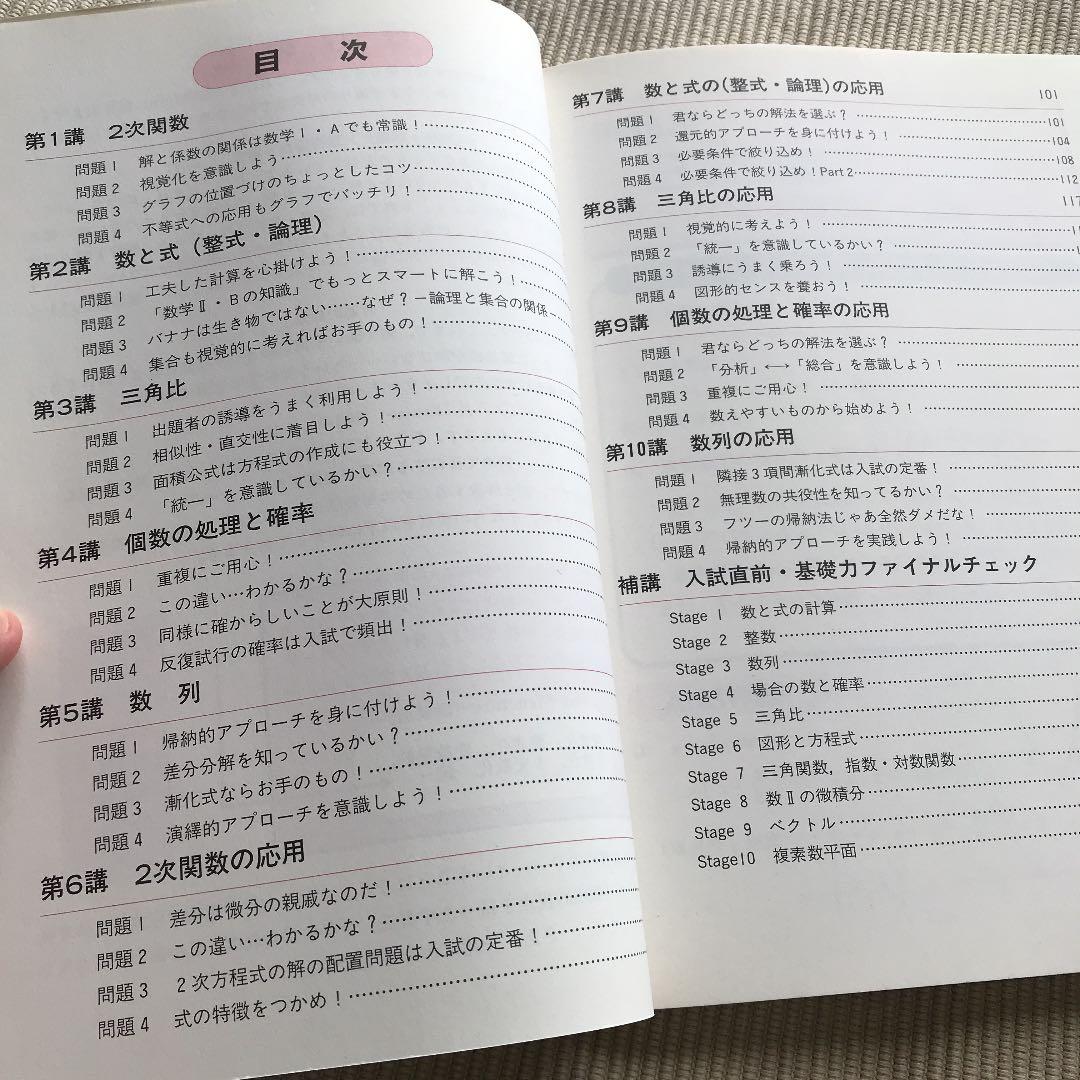 目 次
第1講 2次関数
問題1 解と係数の関係は数学Ⅰ・Aでも常識！
問題2 視覚化を意識しよう
問題3 グラフの位置づけのちょっとしたコツ
問題4 不等式への応用もグラフでバッチリ！
第2講 数と式（整式・論理）
問題1 工夫した計算を心掛けよう！
問題2 「数学Ⅱ・Bの知識」でもっとスマートに解こう！
問題3 バナナは生き物ではない……なぜ？－論理と集合の関係－
問題4 集合も視覚的に考えればお手のもの！
第3講 三角比
問題1 出題者の誘導をうまく利用しよう！
問題2 相似性・直交性に着目しよう！
問題3 面積公式は方程式の作成にも役立つ！
問題4 「統一」を意識しているかい？
第4講 個数の処理と確率
問題1 重複にご用心！
問題2 この違い…わかるかな？
問題3 同様に確からしいことが大原則！
問題4 反復試行の確率は入試で頻出！
第5講 数 列
問題1 帰納的アプローチを身に付けよう！
問題2 差分分解を知っているかい？
問題3 漸化式ならお手のもの！
問題4 演繹的アプローチを意識しよう！
第6講 2次関数の応用
問題1 差分は微分の親戚なのだ！
問題2 この違い…わかるかな？
問題3 2次方程式の解の配置問題は入試の定番！
問題4 式の特徴をつかめ！
第7講 数と式の(整式・論理)の応用 101
問題1 君ならどっちの解法を選ぶ？ 101
問題2 還元的アプローチを身に付けよう！ 104
問題3 必要条件で絞り込め！ 108
問題4 必要条件で絞り込め！Part 2 112
第8講 三角比の応用 117
問題1 視覚的に考えよう！
問題2 「統一」を意識しているかい？
問題3 誘導にうまく乗ろう！
問題4 図形的センスを養おう！
第9講 個数の処理と確率の応用
問題1 君ならどっちの解法を選ぶ？
問題2 「分析」⟷「総合」を意識しよう！
問題3 重複にご用心！
問題4 数えやすいものから始めよう！
第10講 数列の応用
問題1 隣接3項間漸化式は入試の定番！
問題2 無理数の共役性を知ってるかい？
問題3 フツーの帰納法じゃあ全然ダメだな！
問題4 帰納的アプローチを実践しよう！
補講 入試直前・基礎力ファイナルチェック
Stage 1 数と式の計算
Stage 2 整数
Stage 3 数列
Stage 4 場合の数と確率
Stage 5 三角比
Stage 6 図形と方程式
Stage 7 三角関数，指数・対数関数
Stage 8 数Ⅱの微積分
Stage 9 ベクトル
Stage10 複素数平面